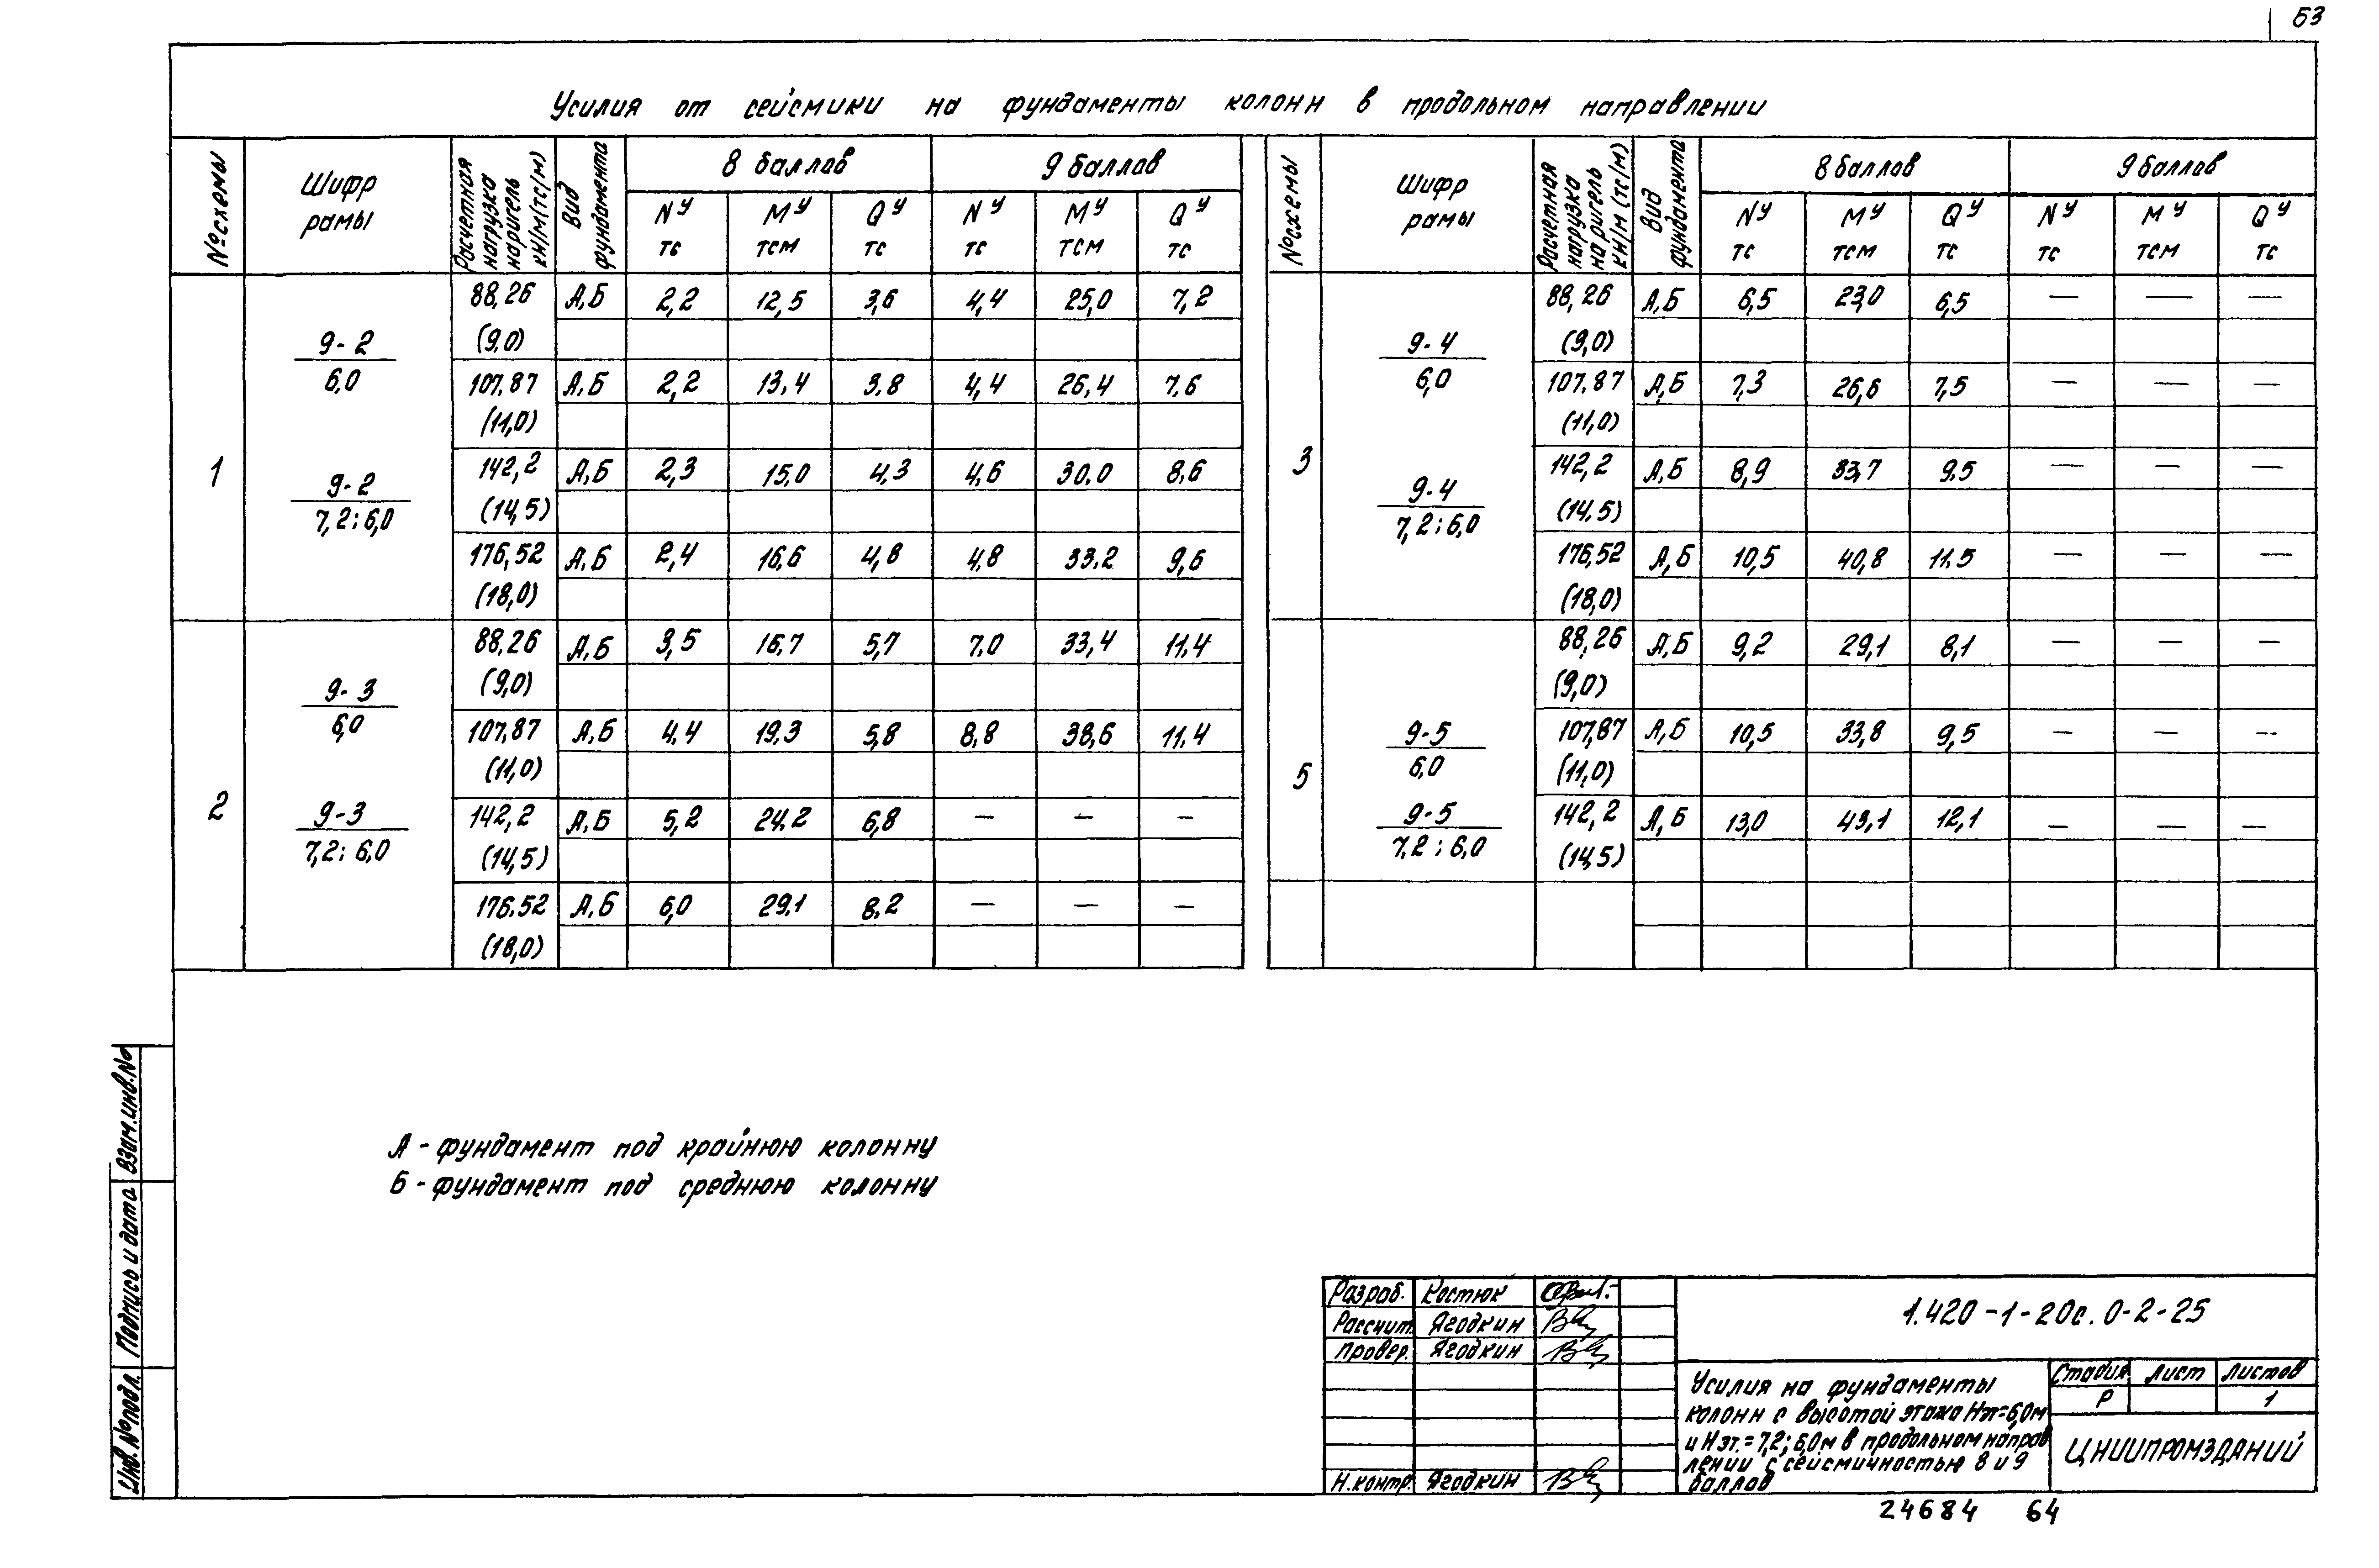 63
Усилия от сейсмики на фундаменты колонн в продольном направлении
№ схемы | Шифр рамы | Расчетная нагрузка на ригель кН/м (тс/м) | Вид фундамента | 8 баллов | 9 баллов
Nу тс | Mу тсм | Qу тс | Nу тс | Mу тсм | Qу тс
1
9-2
6,0
9-2
7,2; 6,0
88,26 (9,0) | А,Б | 2,2 | 12,5 | 3,6 | 4,4 | 25,0 | 7,2
107,87 (11,0) | А,Б | 2,2 | 13,4 | 3,8 | 4,4 | 26,4 | 7,6
142,2 (14,5) | А,Б | 2,3 | 15,0 | 4,3 | 4,6 | 30,0 | 8,6
176,52 (18,0) | А,Б | 2,4 | 16,6 | 4,8 | 4,8 | 33,2 | 9,6
2
9-3
6,0
9-3
7,2; 6,0
88,26 (9,0) | А,Б | 3,5 | 16,7 | 5,7 | 7,0 | 33,4 | 11,4
107,87 (11,0) | А,Б | 4,4 | 19,3 | 5,8 | 8,8 | 38,6 | 11,4
142,2 (14,5) | А,Б | 5,2 | 24,2 | 6,8 | — | — | —
176,52 (18,0) | А,Б | 6,0 | 29,1 | 8,2 | — | — | —
№ схемы | Шифр рамы | Расчетная нагрузка на ригель кН/м (тс/м) | Вид фундамента | 8 баллов | 9 баллов
Nу тс | Mу тсм | Qу тс | Nу тс | Mу тсм | Qу тс
3
9-4
6,0
9-4
7,2; 6,0
88,26 (9,0) | А,Б | 6,5 | 23,0 | 6,5 | — | — | —
107,87 (11,0) | А,Б | 7,3 | 26,6 | 7,5 | — | — | —
142,2 (14,5) | А,Б | 8,9 | 33,7 | 9,5 | — | — | —
176,52 (18,0) | А,Б | 10,5 | 40,8 | 11,5 | — | — | —
5
9-5
6,0
9-5
7,2; 6,0
88,26 (9,0) | А,Б | 9,2 | 29,1 | 8,1 | — | — | —
107,87 (11,0) | А,Б | 10,5 | 33,8 | 9,5 | — | — | —
142,2 (14,5) | А,Б | 13,0 | 43,1 | 12,1 | — | — | —
А - фундамент под крайнюю колонну
Б - фундамент под среднюю колонну
Взам.инв.№
Подпись и дата
Инв.№ подл.
Разраб. Костюк
Рассчит. Ягодкин
Провер. Ягодкин
Н.контр. Ягодкин
1.420-1-20с.0-2-25
Усилия на фундаменты
колонн с высотой этажа Нэт=6,0м
и Нэт.=7,2; 6,0м в продольном направ
лении с сейсмичностью 8 и 9
баллов
Стадия Лист Листов
Р 1
ЦНИИПРОМЗДАНИЙ
24684 64